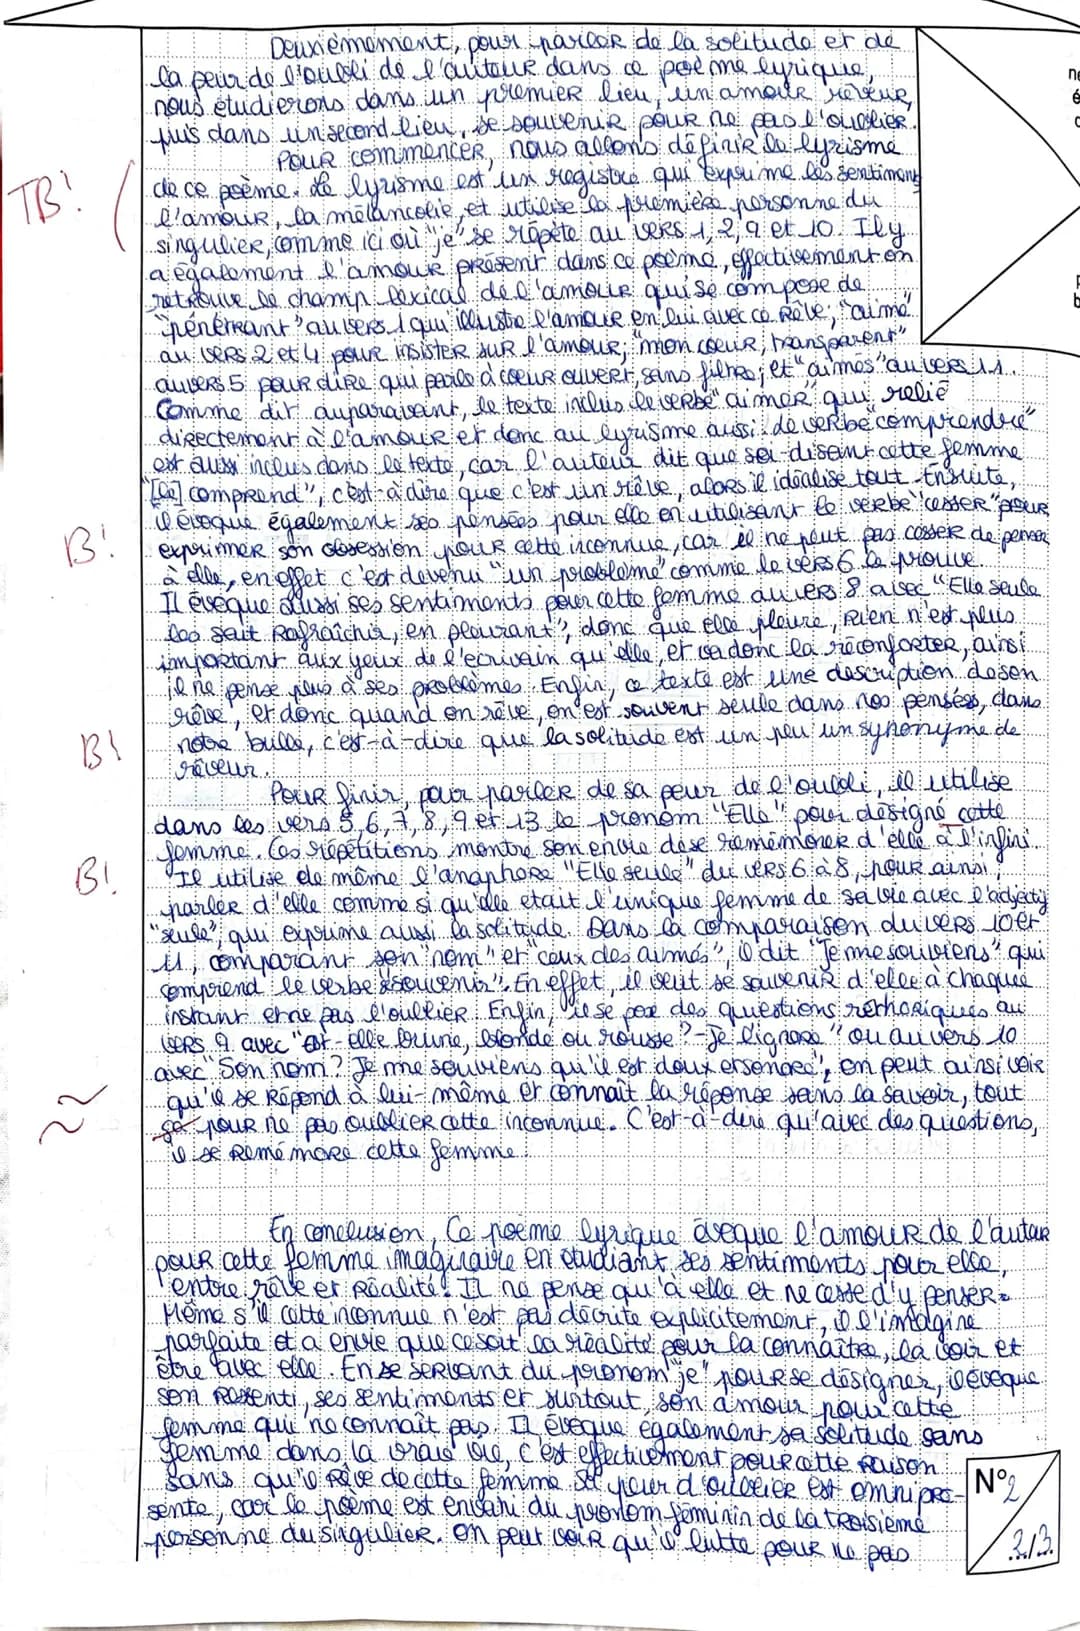 Deuxièmement, pour parler de la solitude et de
la peur de l'oubli de l'auteur dans ce poème lyrique,
nous étudierons dans un premier lieu, un amour rêveur,
puis dans un second lieu, se souvenir pour ne pas l'oublier.
Pour commencer, nous allons définir le lyrisme
de ce poème. Le lyrisme est un registre qui exprime les sentiments
TB!
l'amour, la mélancolie, et utilise la première personne du
singulier, comme ici où "je" se répète au vers 1, 2, 9 et 10. Il y
a également l'amour présent dans ce poème, effectivement on
retrouve le champ lexical de l'amour qui se compose de
"pénétrant" au vers 1 qui illustre l'amour en lui avec ce rêve; "aime"
au vers 2 et 4 pour insister sur l'amour; "mon coeur, transparent"
au vers 5 pour dire qui parle à coeur ouvert, sans filtre; et "aimés" au vers 11.
Comme dit auparavant, le texte inclus le verbe "aimer" qui relié
directement à l'amour et donc au lyrisme aussi. Le verbe "comprendre"
est aussi inclus dans le texte, car l'auteur dit que soi-disant cette femme
"[le] comprend", c'est-à-dire que c'est un rêve, alors il idéalise tout. Ensuite,
il évoque également ses pensées pour elle en utilisant le verbe "cesser" pour
B!
exprimer son obsession pour cette inconnue, car il ne peut pas cesser de penser
à elle, en effet c'est devenu "un problème" comme le vers 6 le prouve.
Il évoque aussi ses sentiments pour cette femme au vers 8 avec "Elle seule
les sait rafraîchir, en pleurant", donc que elle pleure, Rien n'est plus
important aux yeux de l'écrivain qu'elle, et va donc la réconforter, ainsi
il ne pense plus à ses problèmes. Enfin, ce texte est une description de son
rêve, et donc quand on rêve, on est souvent seule dans nos pensées, dans
B!
notre bulle, c'est-à-dire que la solitude est un peu un synonyme de
rêveur.
Pour finir, pour parler de sa peur de l'oubli, il utilise
dans les vers 5, 6, 7, 8, 9 et 13 le pronom "Elle" pour désigné cette
femme. Ces répétitions montre son envie de se remémorer d'elle à l'infini.
B!
Il utilise de même l'anaphore "Elle seule" du vers 6 à 8, pour ainsi
parler d'elle comme si qu'elle etait l'unique femme de sa vie avec l'adjectif
"seule", qui exprime aussi la solitude. Dans la comparaison du vers 10 et
11, comparant son "nom" et "ceux des aimés", il dit "Je me souviens" qui
comprend le verbe "souvenir". En effet, il veut se souvenir d'elle à chaque
instant et ne pas l'oublier. Enfin, il se pose des questions réthoriques au
vers 9 avec "Est-elle brune, blonde ou rousse? - Je l'ignore" ou au vers 10
avec "Son nom? Je me souviens qu'il est doux et sonore", on peut ainsi voir
qu'il se Répond à lui-même et connaît la réponse sans la savoir, tout
ça pour ne pas oublier cette inconnue. C'est-à-dire qu'avec des questions,
il se remémore cette femme.
En conclusion, Ce poème lyrique évoque l'amour de l'auteur
pour cette femme imaginaire en étudiant ses sentiments pour elle,
entre rêve et Réalité. Il ne pense qu'à elle et ne cesse d'y penser.
Même s'il cette inconnue n'est pas décrite explicitement, il l'imagine
parfaite et a envie que ce soit la réalité pour la connaître, la voir et
être avec elle. En se servant du pronom "je" pour se désigner, il évoque
son ressenti, ses sentiments et surtout, son amour pour cette
femme qui ne connaît pas. Il évoque également sa solitude sans
femme dans la vraie vie, c'est effectivement pour cette Raison
sans qu'il Rêve de cette femme. Sa peur d'oublier est omnipré-
sente, car le poème est envahi du pronom féminin de la troisième
personne du singulier. On peut voir qu'il lutte pour ne pas
N°2
2/3.